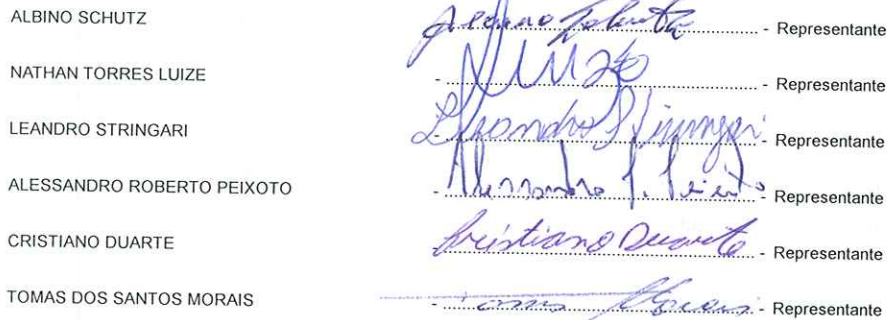 ALBINO SCHUTZ Albino Schutz - Representante
NATHAN TORRES LUIZE - Luize - Representante
LEANDRO STRINGARI - Leandro Stringari - Representante
ALESSANDRO ROBERTO PEIXOTO - Alessandro R. Peixoto - Representante
CRISTIANO DUARTE Cristiano Duarte - Representante
TOMAS DOS SANTOS MORAIS - Tomas Morais - Representante